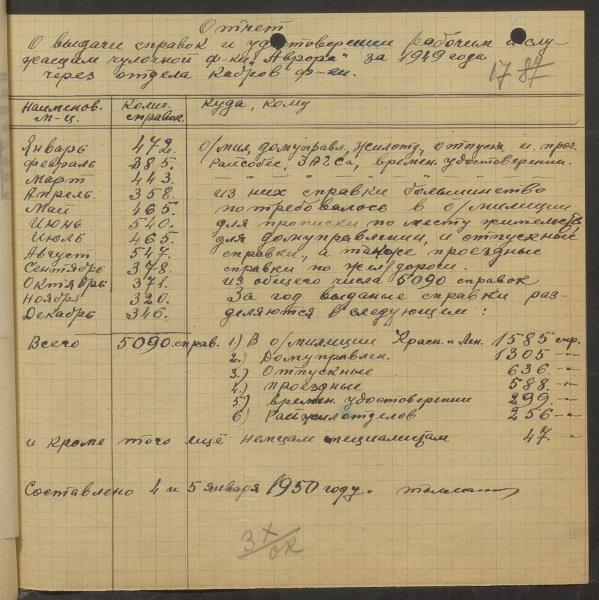 Отчет
О выдачи справок и удостоверении рабочим и слу-
жащим чулочной ф-ки „Аврора" за 1949 года
через отдела Кадров ф-ки.
17 87
Наименов. м-ц. Колич. справок. Куда, кому
Январь 472. о/мил, домуправл, жилоту, отпуска и. проз.
Февраль 385. Райсобес, ЗАГСа, времен. удостоверении.
Март 443. — „ — „ — „ —
Апрель 358. из них справки большинство
Май 465. потребовалось в о/милиции
Июнь 540. для прописки по месту жительств,
Июль 465. для домуправлении, и отпускные
Август 547. справки, а также проездные
Сентябрь 378. справки по жел/дороги.
Октябрь 371. из общего числа 5090 справок
Ноября 320. За год выданые справки раз-
Декабрь 346. деляются в следующем:
Всего 5090. справ. 1) В о/милиции Красн. и Лен. 1585 спр.
2.) Домуправлен. 1305 -"-
3.) Отпускные 636 -"-
4.) проездные 588. -"-
5) времен. удостоверении 299. -"-
6) Райжилотделов 256 -"-
и кроме того ещё немцам специалистам 47. -"-
Составлено 4 и 5 января 1950 году.